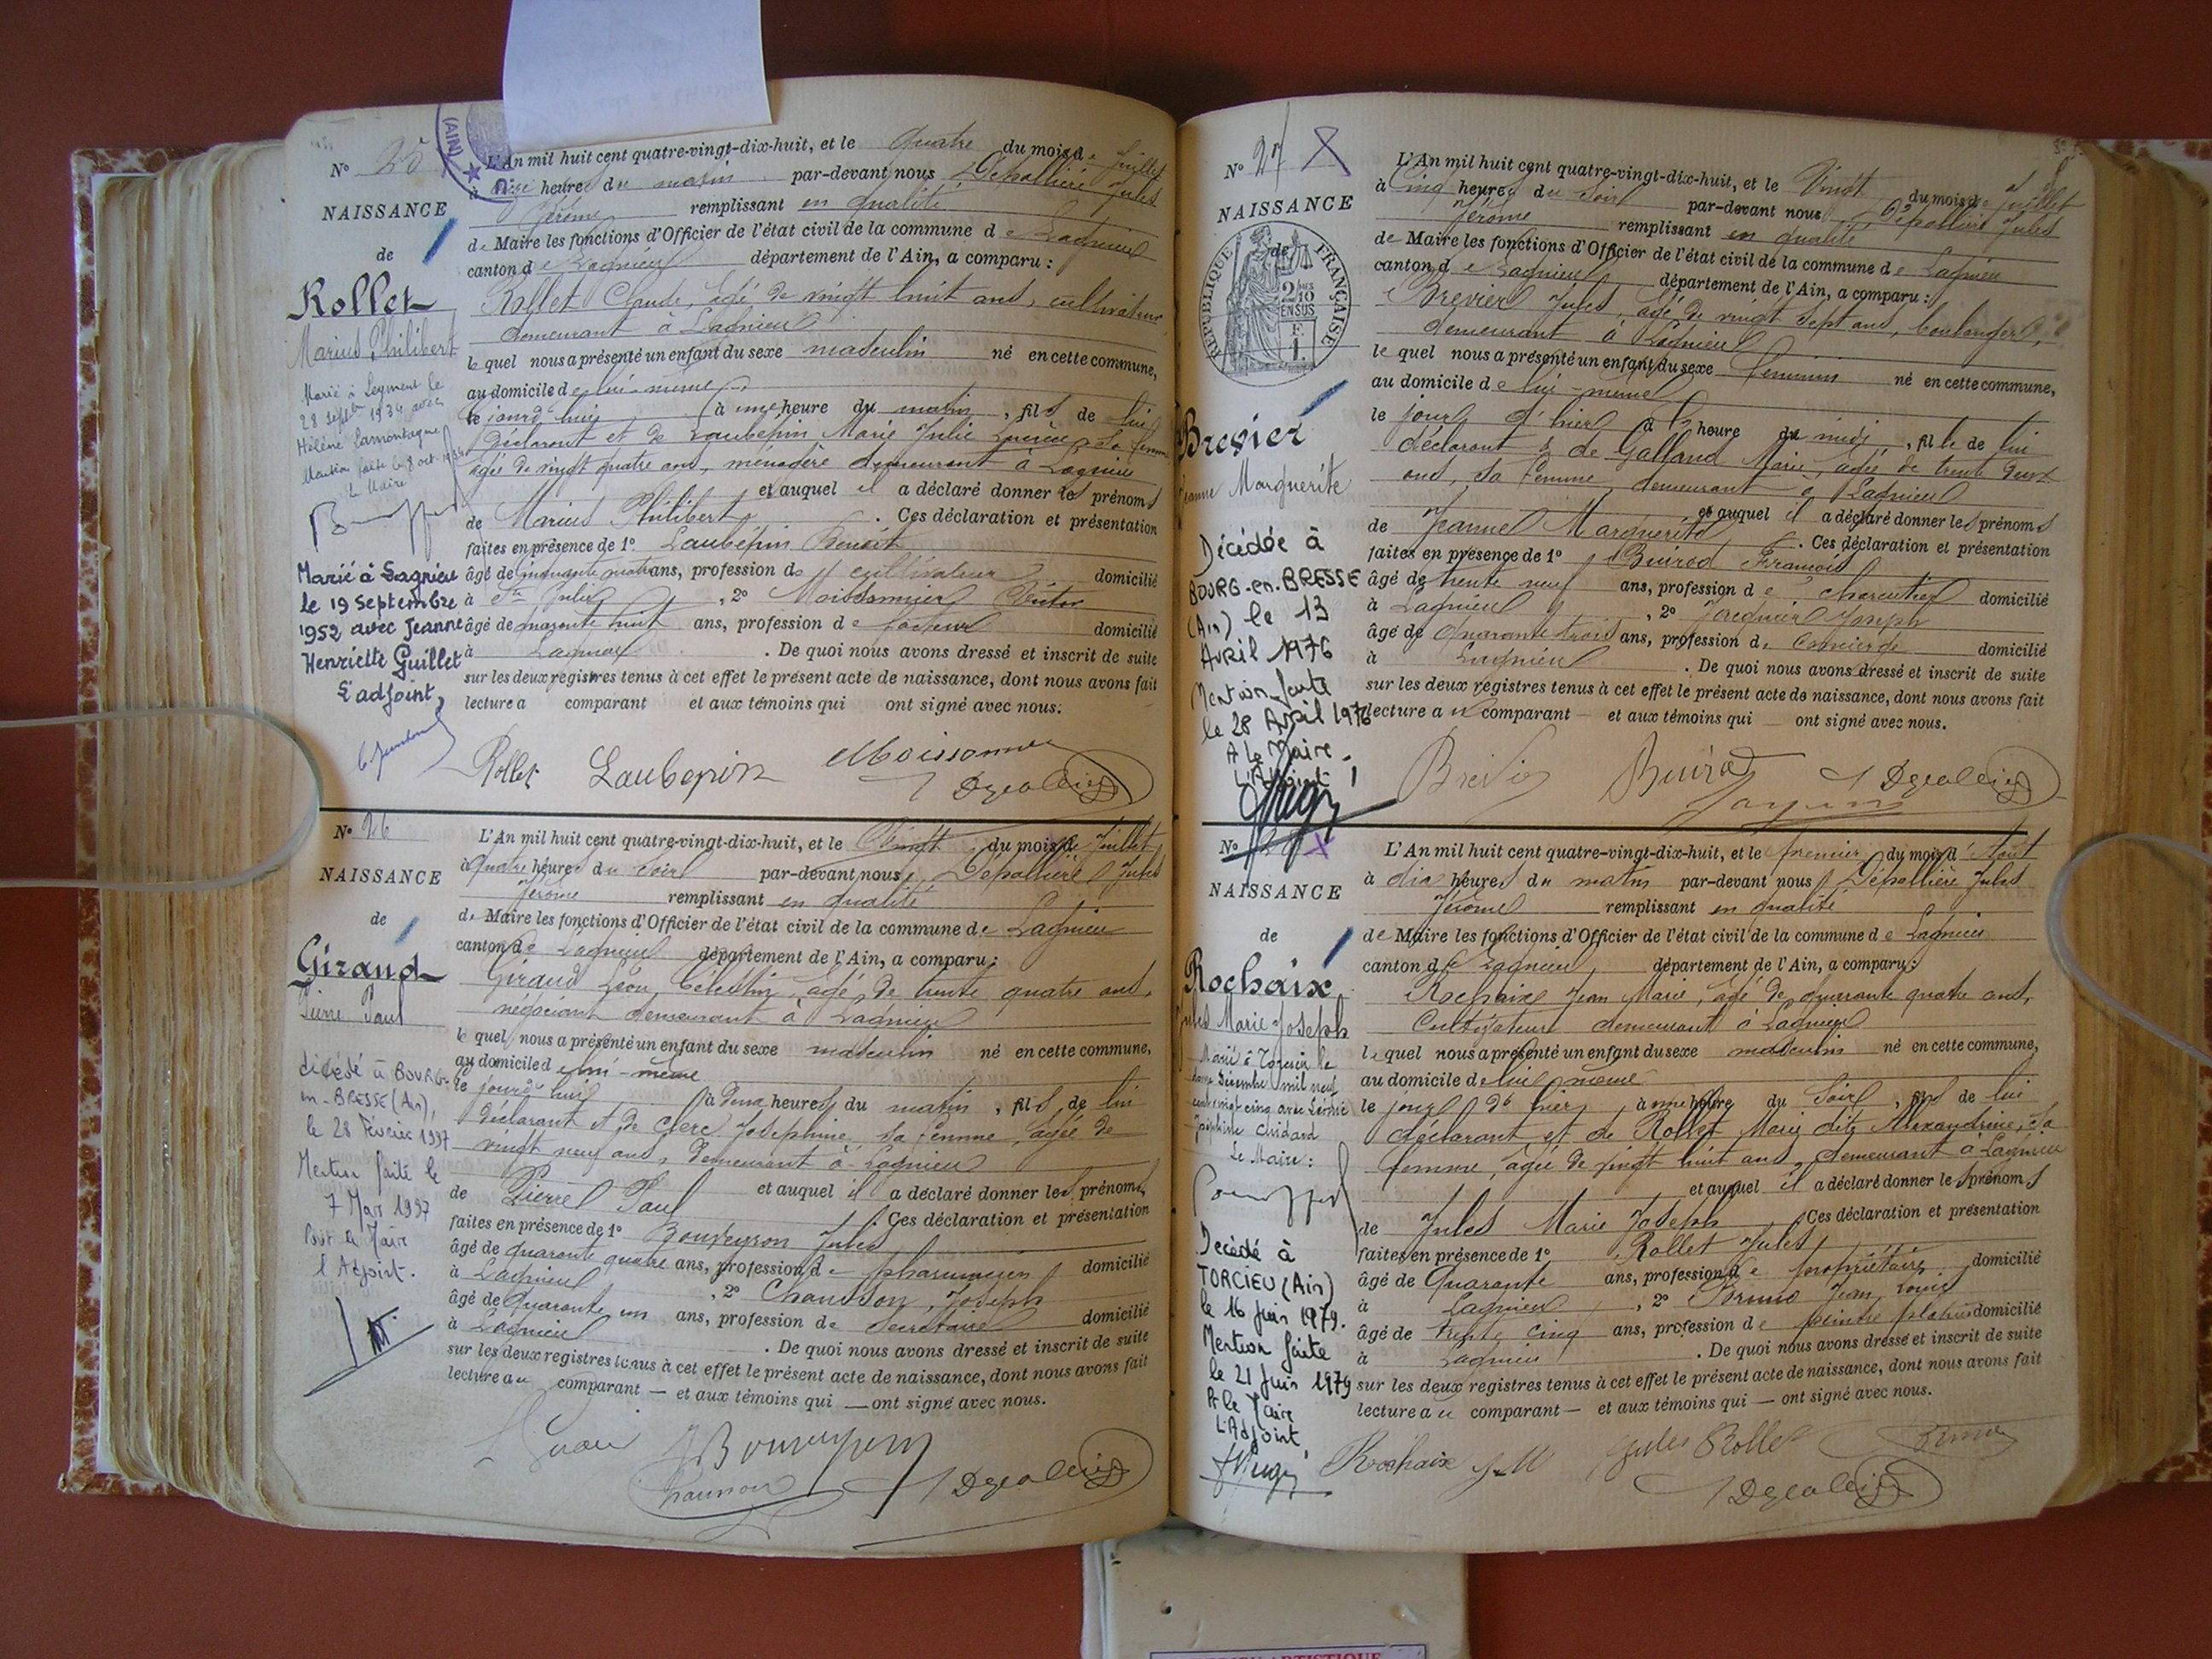 (AIN)
N° 25
NAISSANCE
de
Rollet
Marius Philibert
Marié à Leyment le
28 Septbre 1934 avec
Hélène Lamontagne
Mention faite le 8 oct. 1934
Le Maire
Marié à Lagnieu
le 19 Septembre
1952 avec Jeanne
Henriette Guillet
L'adjoint,
L'An mil huit cent quatre-vingt-dix-huit, et le quatre du mois de Juillet
à heures du matin par-devant nous Dépallière Jules
Jérôme remplissant en qualité
de Maire les fonctions d'Officier de l'état civil de la commune de Lagnieu
canton de Lagnieu département de l'Ain, a comparu :
Rollet Claude, âgé de vingt huit ans, cultivateur
demeurant à Lagnieu
lequel nous a présenté un enfant du sexe masculin né en cette commune,
au domicile de lui-même,
le jourd'hui à une heure du matin, fils de lui
déclarant et de Laubepin Marie Julie sa femme
âgée de vingt quatre ans, ménagère demeurant à Lagnieu
et auquel il a déclaré donner les prénoms
de Marius Philibert. Ces déclaration et présentation
faites en présence de 1° Laubépin Benoît
âgé de cinquante quatre ans, profession de cultivateur domicilié
à St Jules, 2° Moissonnier
âgé de quarante huit ans, profession de facteur domicilié
à Lagnieu. De quoi nous avons dressé et inscrit de suite
sur les deux registres tenus à cet effet le présent acte de naissance, dont nous avons fait
lecture a comparant et aux témoins qui ont signé avec nous.
Rollet Laubepin Moissonnier
N° 26
NAISSANCE
de
Giraud
Pierre Paul
décédé à BOURG-
en-BRESSE (Ain),
le 28 Février 1997
Mention faite le
7 Mars 1997
Pour le Maire
l'Adjoint.
L'An mil huit cent quatre-vingt-dix-huit, et le Vingt du mois de Juillet
à quatre heures du soir par-devant nous, Dépallière Jules
Jérôme remplissant en qualité
de Maire les fonctions d'Officier de l'état civil de la commune de Lagnieu
canton de Lagnieu département de l'Ain, a comparu :
Giraud Léon Célestin, âgé de trente quatre ans,
négociant demeurant à Lagnieu
lequel nous a présenté un enfant du sexe masculin né en cette commune,
au domicile de lui-même
le jourd'hui à deux heures du matin, fils de lui
déclarant et de Clerc Joséphine, sa femme, âgée de
vingt neuf ans, demeurant à Lagnieu
et auquel il a déclaré donner les prénoms
de Pierre Paul. Ces déclaration et présentation
faites en présence de 1° Bouveyron Jules
âgé de quarante quatre ans, profession de pharmacien domicilié
à Lagnieu, 2° Chausson, Joseph
âgé de Quarante un ans, profession de Secrétaire domicilié
à Lagnieu. De quoi nous avons dressé et inscrit de suite
sur les deux registres tenus à cet effet le présent acte de naissance, dont nous avons fait
lecture au comparant — et aux témoins qui — ont signé avec nous.
N° 27
NAISSANCE
de
RÉPUBLIQUE FRANÇAISE
Brevier
Jeanne Marguerite
Décédée à
BOURG-en-BRESSE
(Ain) le 13
Avril 1976
Mention faite
le 28 Avril 1976
P. le Maire
L'Adjoint
L'An mil huit cent quatre-vingt-dix-huit, et le Vingt du mois de Juillet
à cinq heures du soir par-devant nous Dépallière Jules
Jérôme remplissant en qualité
de Maire les fonctions d'Officier de l'état civil de la commune de Lagnieu
canton de Lagnieu département de l'Ain, a comparu :
Brevier Jules, âgé de vingt sept ans, boulanger,
demeurant à Lagnieu
lequel nous a présenté un enfant du sexe féminin né en cette commune,
au domicile de lui-même
le jour d'hier à heure du midi, fille de lui
déclarant & de Galland Marie, âgée de trente deux
ans, sa femme, demeurant à Lagnieu
et auquel il a déclaré donner les prénoms
de Jeanne Marguerite. Ces déclaration et présentation
faites en présence de 1° Buirod François
âgé de trente neuf ans, profession de charcutier domicilié
à Lagnieu, 2° Joseph
âgé de Quarante trois ans, profession de concierge domicilié
à Lagnieu. De quoi nous avons dressé et inscrit de suite
sur les deux registres tenus à cet effet le présent acte de naissance, dont nous avons fait
lecture au comparant — et aux témoins qui — ont signé avec nous.
Brevier Buirod
N° 28
NAISSANCE
de
Rochaix
Jules Marie Joseph
Marié à Torcieu le
Décembre mil neuf
cent vingt cinq avec
Joséphine Chidard
Le Maire :
Décédé à
TORCIEU (Ain)
le 16 Juin 1979.
Mention faite
le 21 Juin 1979
P. le Maire
L'Adjoint,
L'An mil huit cent quatre-vingt-dix-huit, et le premier du mois d'Août
à dix heures du matin par-devant nous Dépallière Jules
Jérôme remplissant en qualité
de Maire les fonctions d'Officier de l'état civil de la commune de Lagnieu
canton de Lagnieu département de l'Ain, a comparu :
Rochaix Jean Marie, âgé de quarante quatre ans,
Cultivateur demeurant à Lagnieu
lequel nous a présenté un enfant du sexe masculin né en cette commune,
au domicile de lui-même
le jour d'hier à une heure du soir, fils de lui
déclarant et de Rollet Marie dite Alexandrine, sa
femme, âgée de vingt huit ans, demeurant à Lagnieu
et auquel il a déclaré donner les prénoms
de Jules Marie Joseph Ces déclaration et présentation
faites en présence de 1° Rollet Jules
âgé de Quarante ans, profession de propriétaire domicilié
à Lagnieu, 2° Jean Louis
âgé de trente cinq ans, profession de peintre plâtrier domicilié
à Lagnieu. De quoi nous avons dressé et inscrit de suite
sur les deux registres tenus à cet effet le présent acte de naissance, dont nous avons fait
lecture au comparant — et aux témoins qui — ont signé avec nous.
Rochaix J-M Jules Rollet